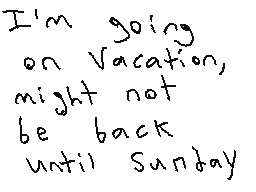 I'm going
on vacation,
might not
be back
until sunday